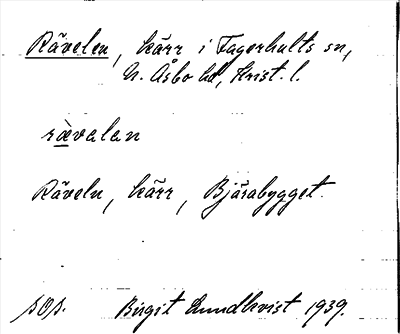 Rävelen, kärr i Fagerhults sn,
N. Åsbo hd, Krist. l.
rævalan
Räveln, kärr, Bjäsabygget.
sos. Birgit Lundkvist 1939.